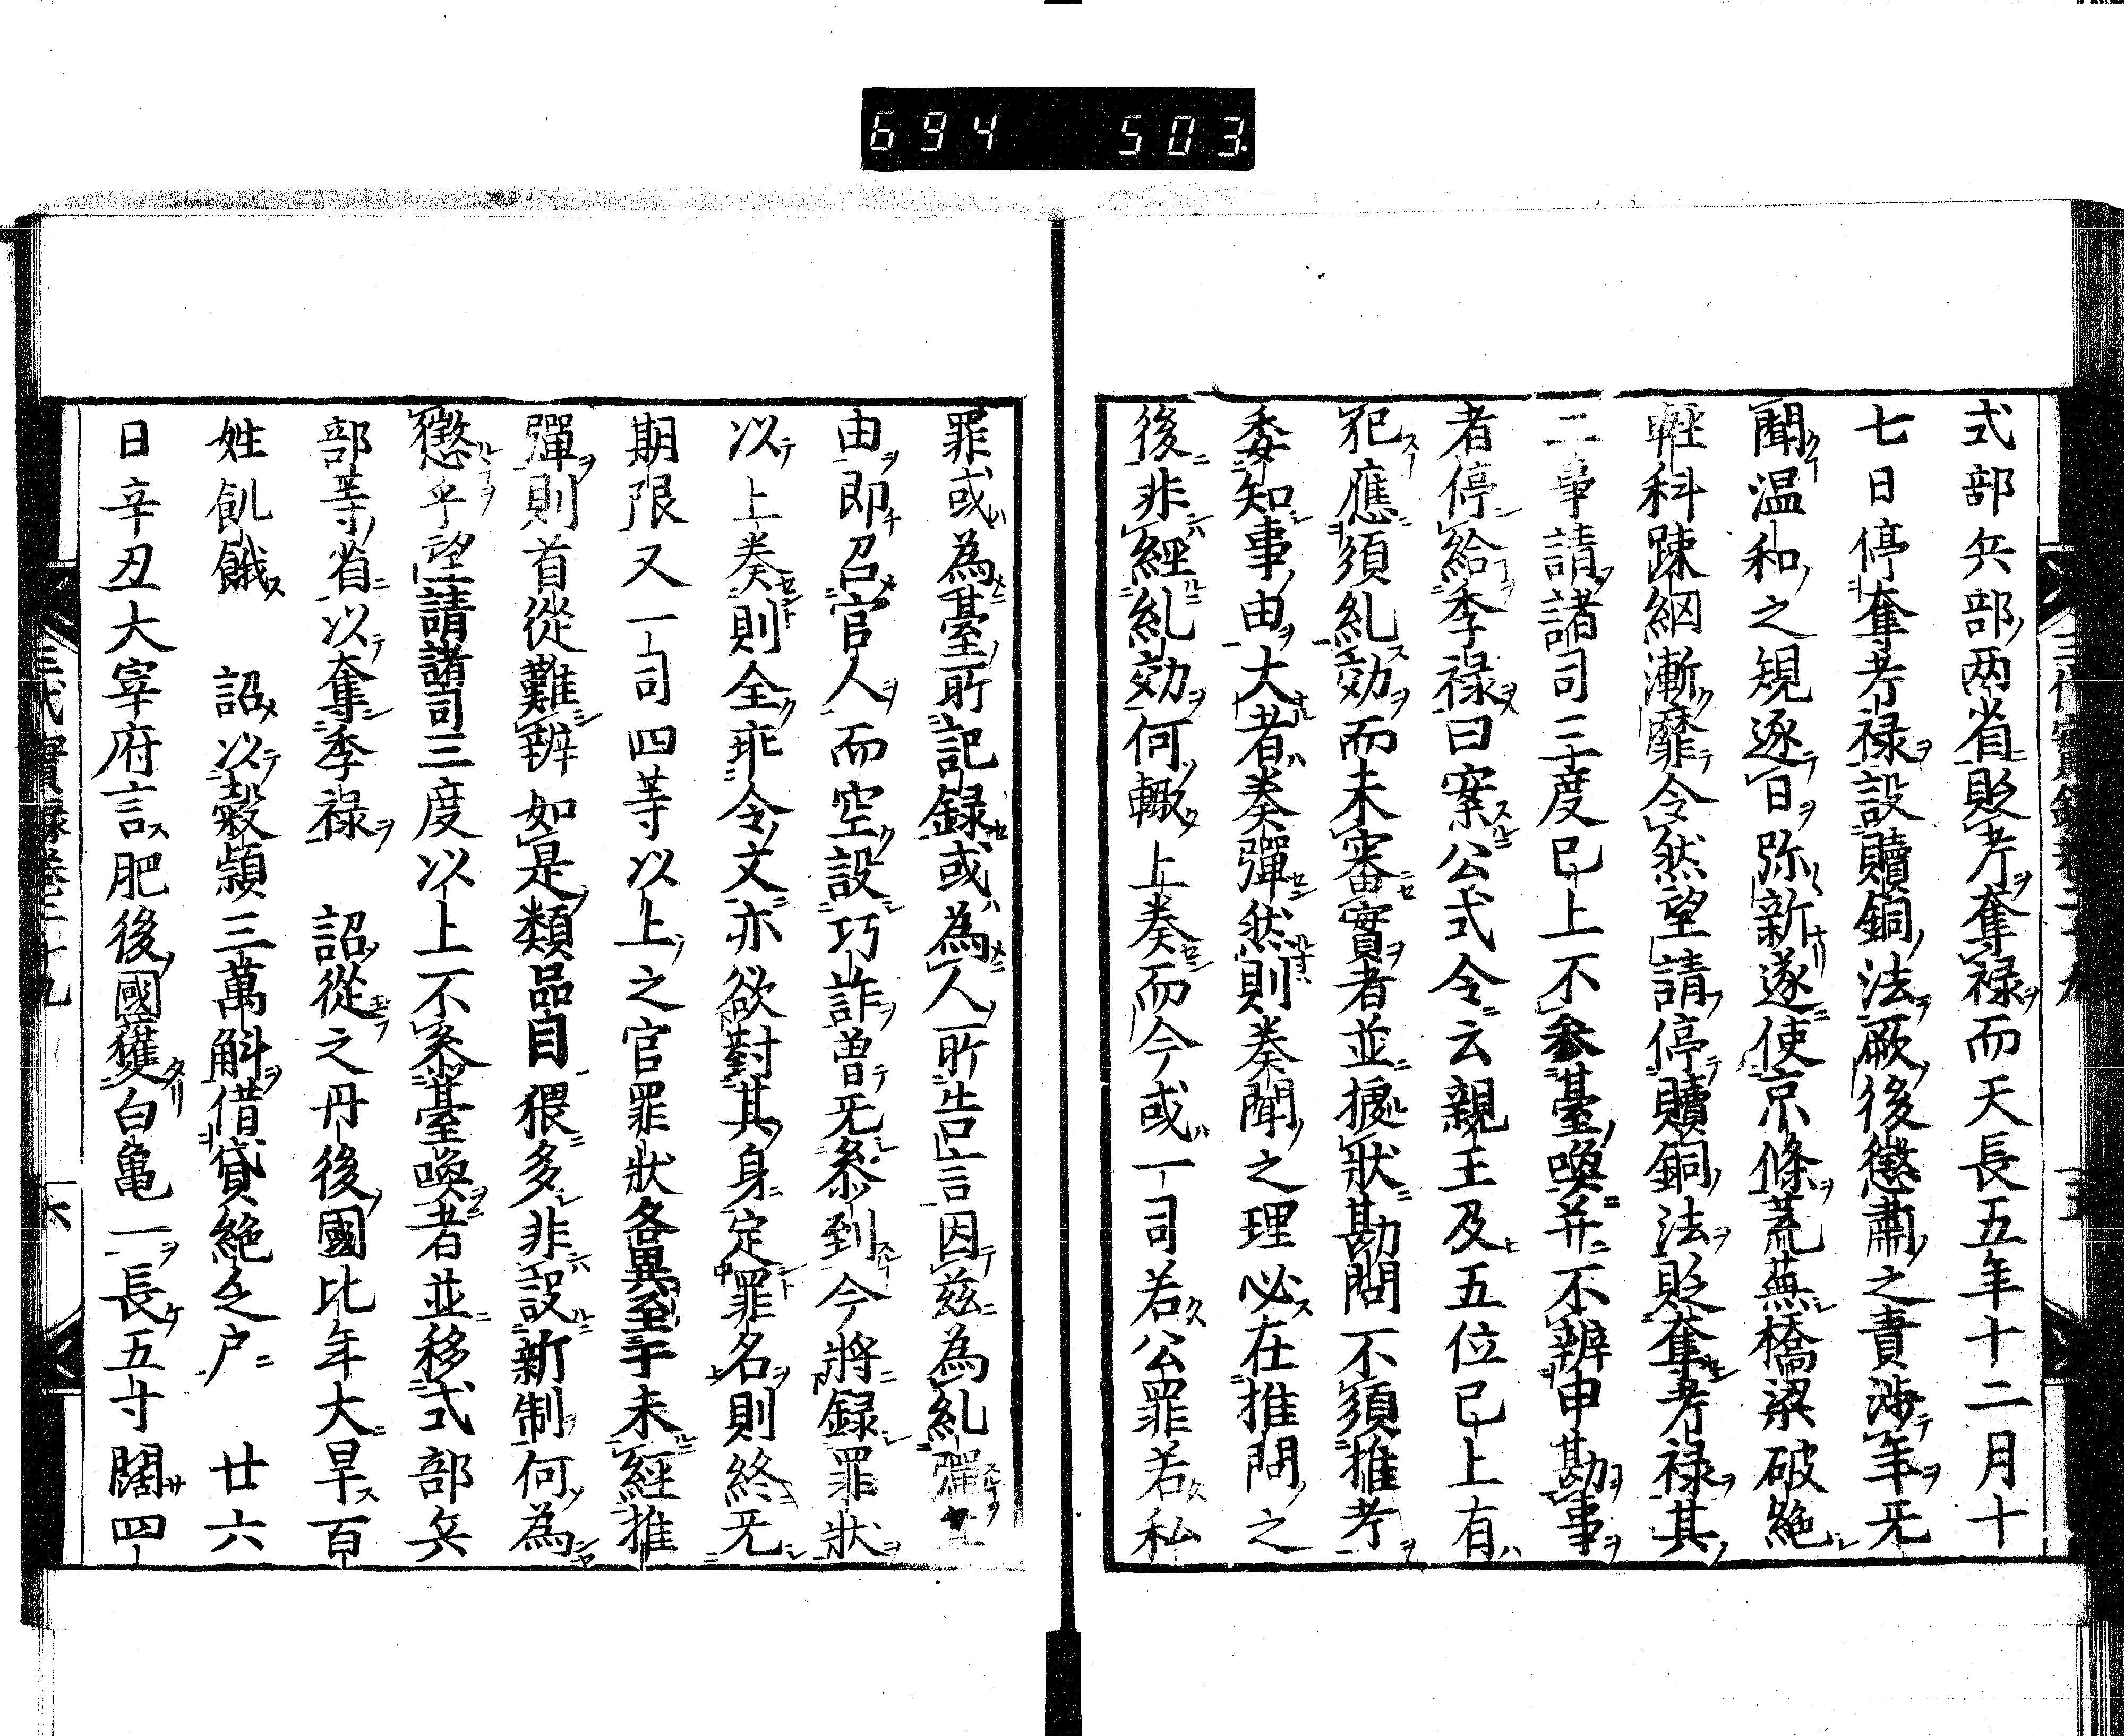 694 503.
式部兵部両省貶考奪禄而天長五年十二月十
七日停奪考禄設贖銅法厥後懲肅之責渉年旡
聞温和之規逐日弥新遂使京條荒蕪橋梁破絶
軽科踈網漸靡令然望請停贖銅法貶奪考禄其
二事請諸司三度已上不参臺喚并不辨申勘事
者停給季禄曰案公式令云親王及五位已上有
犯應須糺効而未審實者並據状勘問不須推考
委知事由大者奏彈然則奏聞之理必在推問之
後非經糺効何輙上奏而今或一司若公罪若私
罪或為臺所記録或為人所告言因茲為糺彈
由即召官人而空設巧詐曽旡叅到今將録罪状
以上奏則全乖令文亦欲對其身定罪名則終旡
期限又一司四等以上之官罪狀各異至于未經推
彈則首從難辨如是類品自猥多非設新制何為
懲乎望請諸司三度以上不叅臺喚者並移式部兵
部等省以奪季禄 詔從之丹後國比年大旱百
姓飢餓 詔以穀頴三萬斛借貸絶乏戸 廿六
日辛丑大宰府言肥後國獲白亀一長五寸闊四
三代實録卷二十九 六